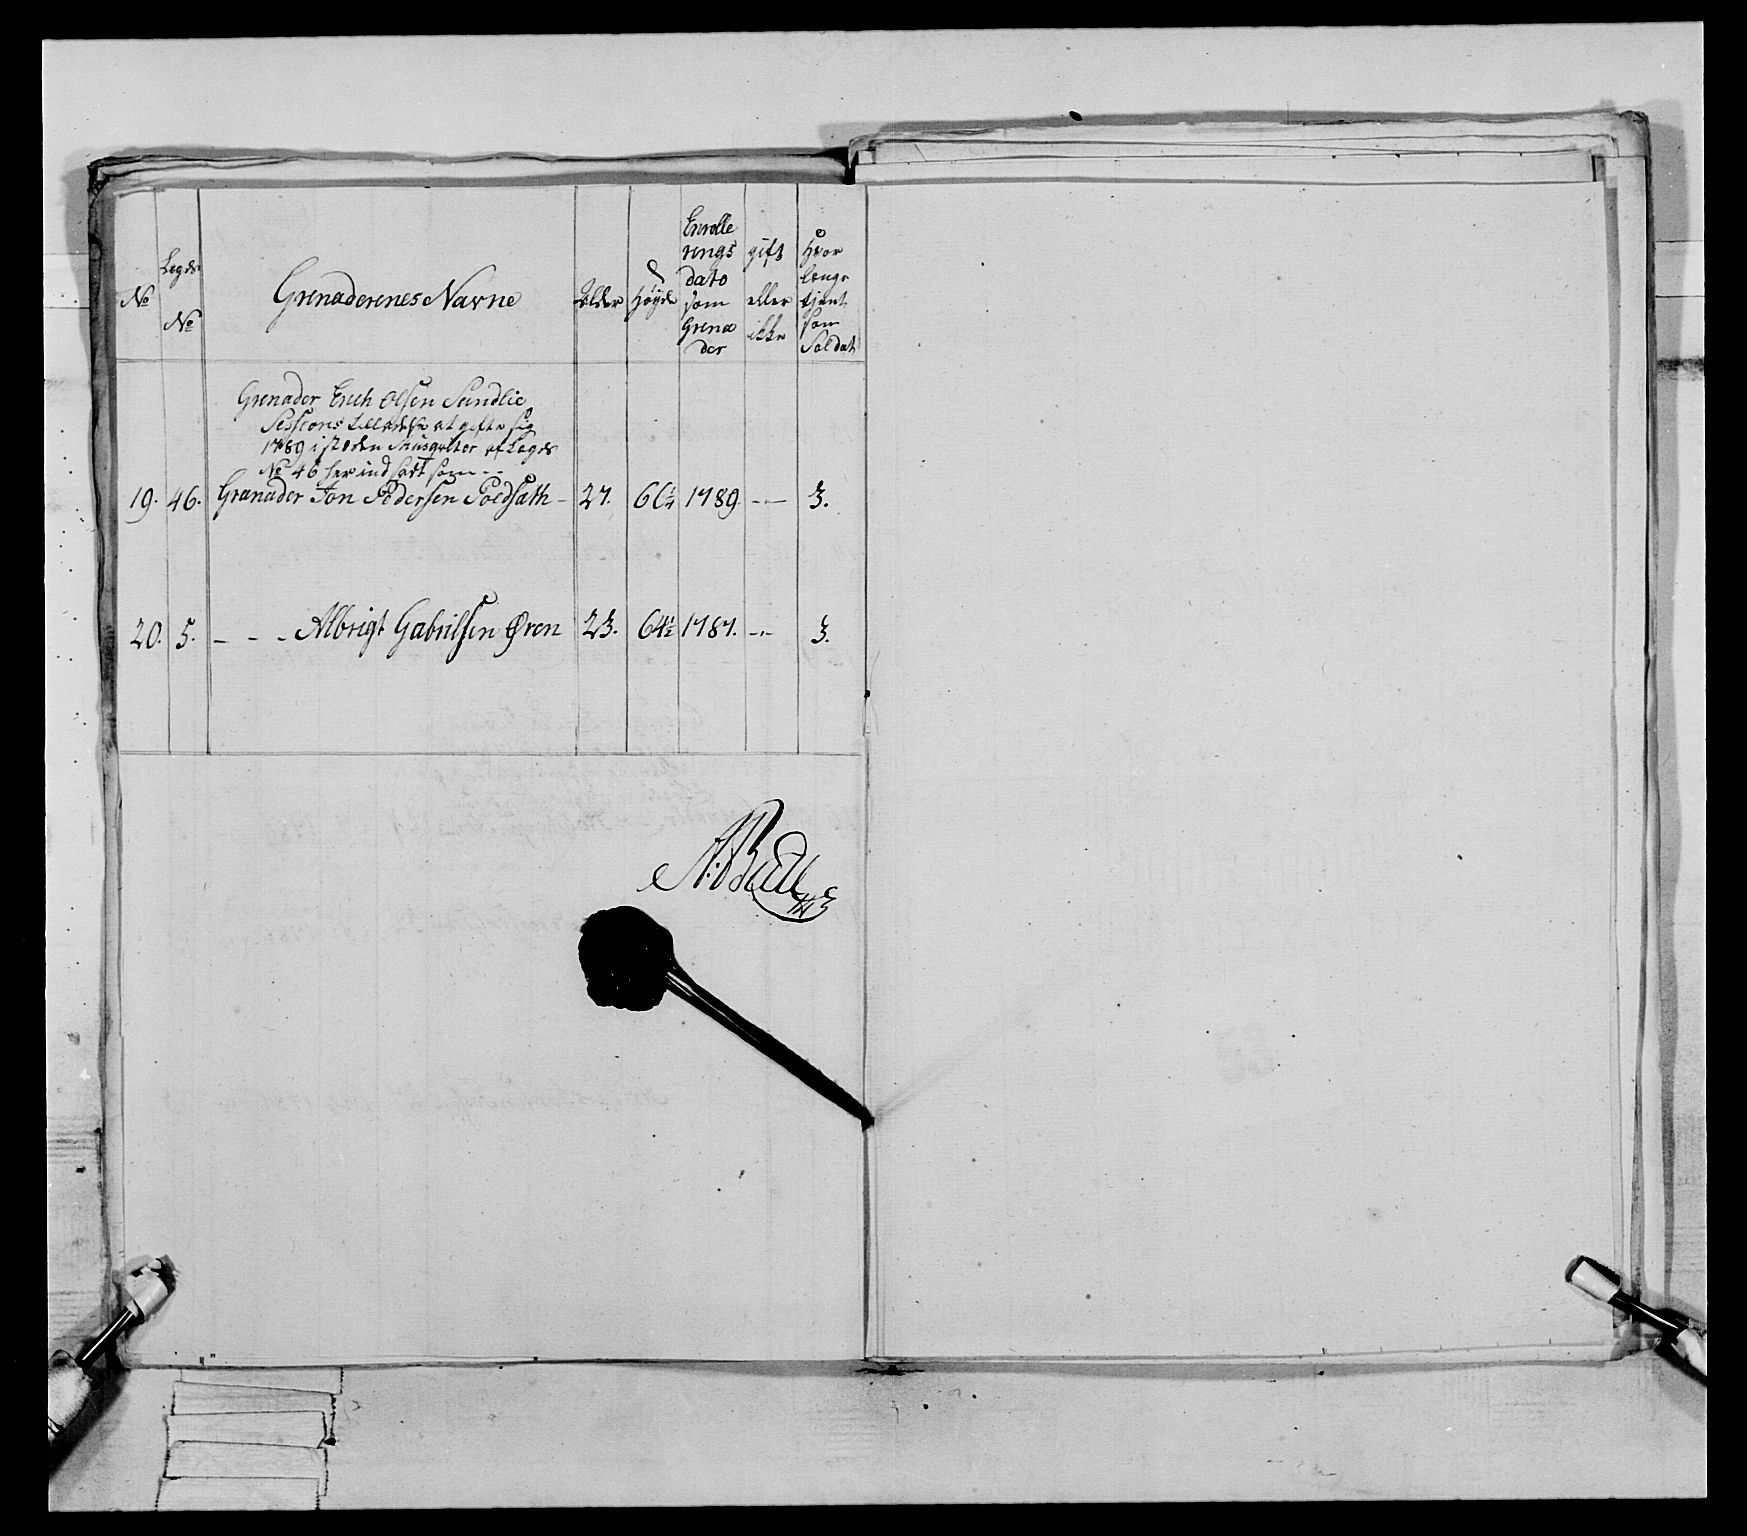 No
Legds
No
Grenaderenes Navne
Alder
Høyde
Enrolle
rings
dato
som
Grena
der
gift
eller
ikke
Hvor
længe
tjent
som
Soldat
Grenader Erich Olsen Sundlie
Sessions tilladelse at gifte sig
1789 i steden Musqveter af Legds
No 46 her indsadt som --
19. 46. Granader Jon Pedersen Soedsæth - 27. 66 1/4 1789 - - 3.
20. 5. - - - Albrigt Gabrilsen Øren 23. 64 1/2 1787. - - 3.